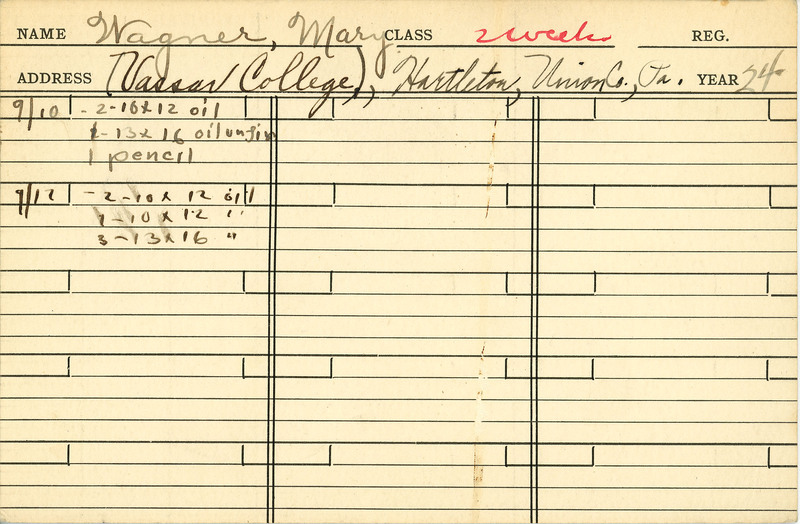 NAME Wagner, Mary CLASS 2 weeks REG.
ADDRESS (Vassar College), Hartleton, Union Co., Pa. YEAR 24
9/10 - 2-10x12 oil
2-13x16 oil unfin
1 pencil
9/12 - 2-10 x 12 oil
1-10 x 12 "
3-13x16 "